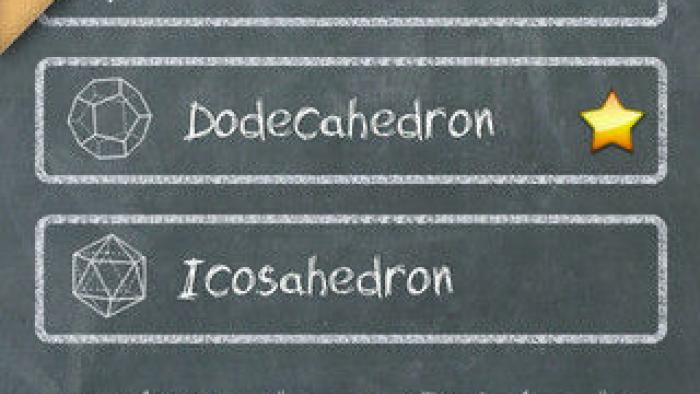 Dodecahedron
Icosahedron